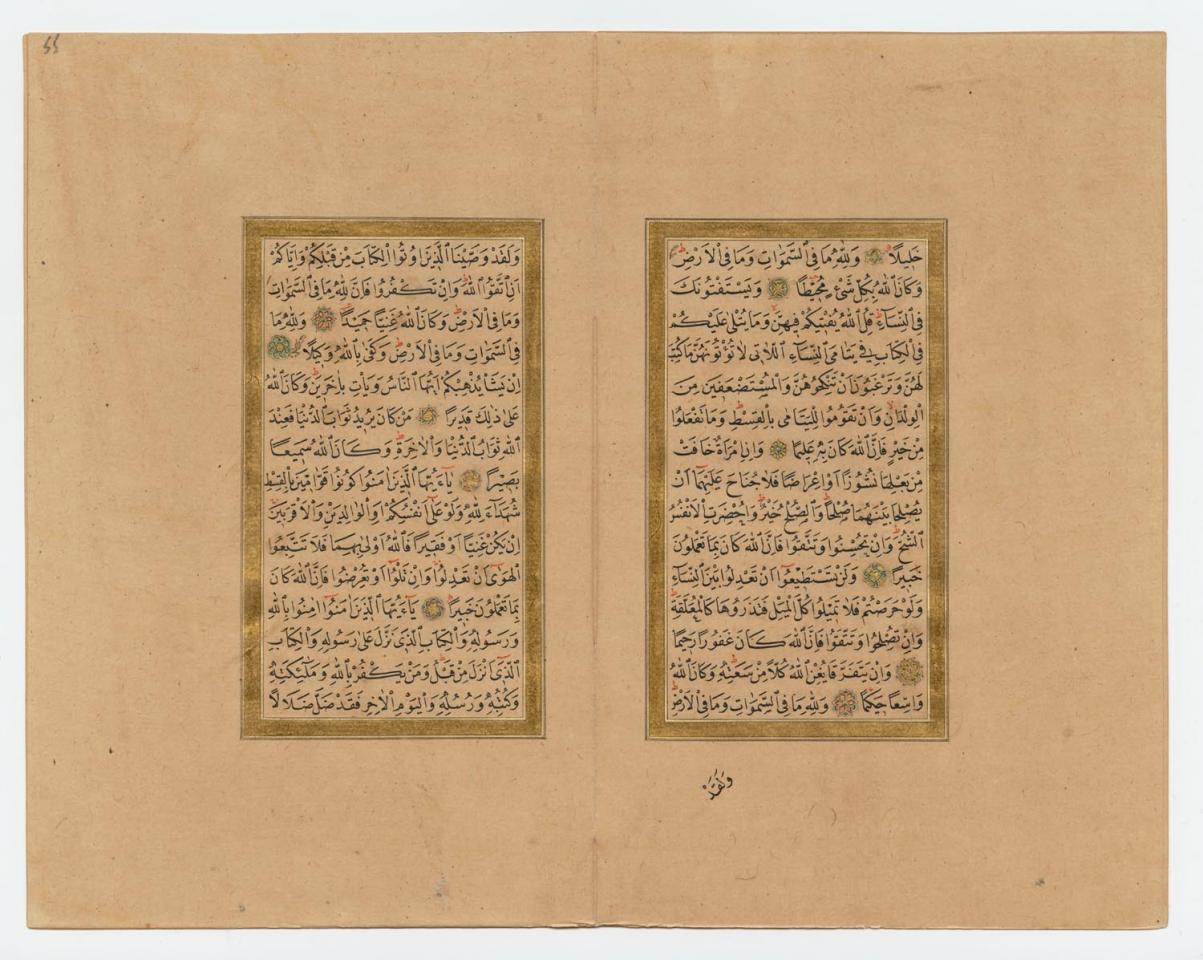 خَلِيلًا وَلِلّٰهِ مَا فِي السَّمٰوَاتِ وَمَا فِي الْاَرْضِ
وَكَانَ اللّٰهُ بِكُلِّ شَيْءٍ مُحِيطًا وَيَسْتَفْتُونَكَ
فِي النِّسَاءِ قُلِ اللّٰهُ يُفْتِيكُمْ فِيهِنَّ وَمَا يُتْلٰى عَلَيْكُمْ
فِي الْكِتَابِ فِي يَتَامَى النِّسَاءِ اللَّاتِي لَا تُؤْتُونَهُنَّ مَا كُتِبَ
لَهُنَّ وَتَرْغَبُونَ اَنْ تَنْكِحُوهُنَّ وَالْمُسْتَضْعَفِينَ مِنَ
الْوِلْدَانِ وَاَنْ تَقُومُوا لِلْيَتَامٰى بِالْقِسْطِ وَمَا تَفْعَلُوا
مِنْ خَيْرٍ فَاِنَّ اللّٰهَ كَانَ بِهِ عَلِيمًا وَاِنِ امْرَاَةٌ خَافَتْ
مِنْ بَعْلِهَا نُشُوزًا اَوْ اِعْرَاضًا فَلَا جُنَاحَ عَلَيْهِمَا اَنْ
يُصْلِحَا بَيْنَهُمَا صُلْحًا وَالصُّلْحُ خَيْرٌ وَاُحْضِرَتِ الْاَنْفُسُ
الشُّحَّ وَاِنْ تُحْسِنُوا وَتَتَّقُوا فَاِنَّ اللّٰهَ كَانَ بِمَا تَعْمَلُونَ
خَبِيرًا وَلَنْ تَسْتَطِيعُوا اَنْ تَعْدِلُوا بَيْنَ النِّسَاءِ
وَلَوْ حَرَصْتُمْ فَلَا تَمِيلُوا كُلَّ الْمَيْلِ فَتَذَرُوهَا كَالْمُعَلَّقَةِ
وَاِنْ تُصْلِحُوا وَتَتَّقُوا فَاِنَّ اللّٰهَ كَانَ غَفُورًا رَحِيمًا
وَاِنْ يَتَفَرَّقَا يُغْنِ اللّٰهُ كُلًّا مِنْ سَعَتِهِ وَكَانَ اللّٰهُ
وَاسِعًا حَكِيمًا وَلِلّٰهِ مَا فِي السَّمٰوَاتِ وَمَا فِي الْاَرْضِ
وَلَقَدْ
وَلَقَدْ وَصَّيْنَا الَّذِينَ اُوتُوا الْكِتَابَ مِنْ قَبْلِكُمْ وَاِيَّاكُمْ
اَنِ اتَّقُوا اللّٰهَ وَاِنْ تَكْفُرُوا فَاِنَّ لِلّٰهِ مَا فِي السَّمٰوَاتِ
وَمَا فِي الْاَرْضِ وَكَانَ اللّٰهُ غَنِيًّا حَمِيدًا وَلِلّٰهِ مَا
فِي السَّمٰوَاتِ وَمَا فِي الْاَرْضِ وَكَفٰى بِاللّٰهِ وَكِيلًا
اِنْ يَشَاْ يُذْهِبْكُمْ اَيُّهَا النَّاسُ وَيَاْتِ بِاٰخَرِينَ وَكَانَ اللّٰهُ
عَلٰى ذٰلِكَ قَدِيرًا مَنْ كَانَ يُرِيدُ ثَوَابَ الدُّنْيَا فَعِنْدَ
اللّٰهِ ثَوَابُ الدُّنْيَا وَالْاٰخِرَةِ وَكَانَ اللّٰهُ سَمِيعًا
بَصِيرًا يَاءَيُّهَا الَّذِينَ اٰمَنُوا كُونُوا قَوَّامِينَ بِالْقِسْطِ
شُهَدَاءَ لِلّٰهِ وَلَوْ عَلٰى اَنْفُسِكُمْ اَوِ الْوَالِدَيْنِ وَالْاَقْرَبِينَ
اِنْ يَكُنْ غَنِيًّا اَوْ فَقِيرًا فَاللّٰهُ اَوْلٰى بِهِمَا فَلَا تَتَّبِعُوا
الْهَوٰى اَنْ تَعْدِلُوا وَاِنْ تَلْوُوا اَوْ تُعْرِضُوا فَاِنَّ اللّٰهَ كَانَ
بِمَا تَعْمَلُونَ خَبِيرًا يَاءَيُّهَا الَّذِينَ اٰمَنُوا اٰمِنُوا بِاللّٰهِ
وَرَسُولِهِ وَالْكِتَابِ الَّذِي نَزَّلَ عَلٰى رَسُولِهِ وَالْكِتَابِ
الَّذِي اَنْزَلَ مِنْ قَبْلُ وَمَنْ يَكْفُرْ بِاللّٰهِ وَمَلٰئِكَتِهِ
وَكُتُبِهِ وَرُسُلِهِ وَالْيَوْمِ الْاٰخِرِ فَقَدْ ضَلَّ ضَلَالًا